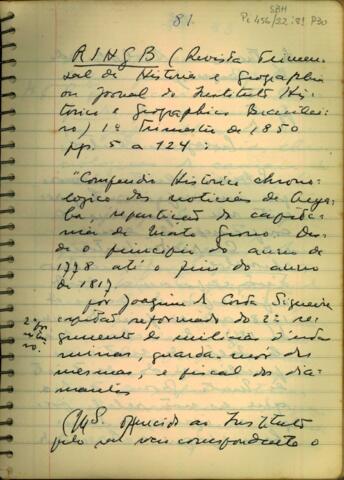 SBH
Pi 456/22:81 P30
81.
RIHGB (Revista Trimen-
sal de Historia e Geographia
ou Jornal do Instituto His-
torico e Geographico Brasilei-
ro) 1º Trimestre de 1850
pp. 5 a 124:
"Compendio Historico chrono-
logico das noticias de Cuya-
bá, repartição da capita-
nia de Mato Grosso Des-
de o principio do anno de
1778 até o fim do anno
de 1817.
por Joaquim da Costa Siqueira
capitão reformado do 2º re-
gimento de milicias d'estas
minas, guarda-mor das
mesmas, e fiscal dos dia-
mantes
(MS. offerecido ao Instituto
pelo seu socio correspondente o